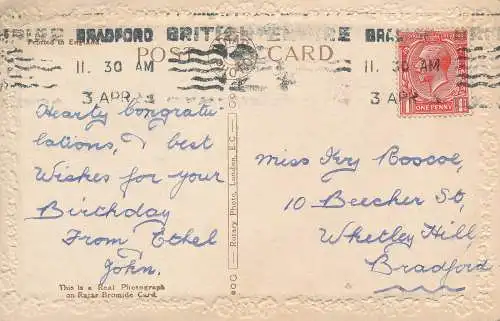 BRADFORD BRITISH EMPIRE
11. 30 AM
3 APR
11. 30 AM
3 APR
Printed in England
POST CARD
ONE PENNY
Hearty Congratu
lations, & best
Wishes for your
Birthday
From Ethel
John.
Miss Ivy Roscoe,
10 Beecher St,
Whetley Hill,
Bradford
Rotary Photo, London, E.C.
This is a Real Photograph
on Rajar Bromide Card.